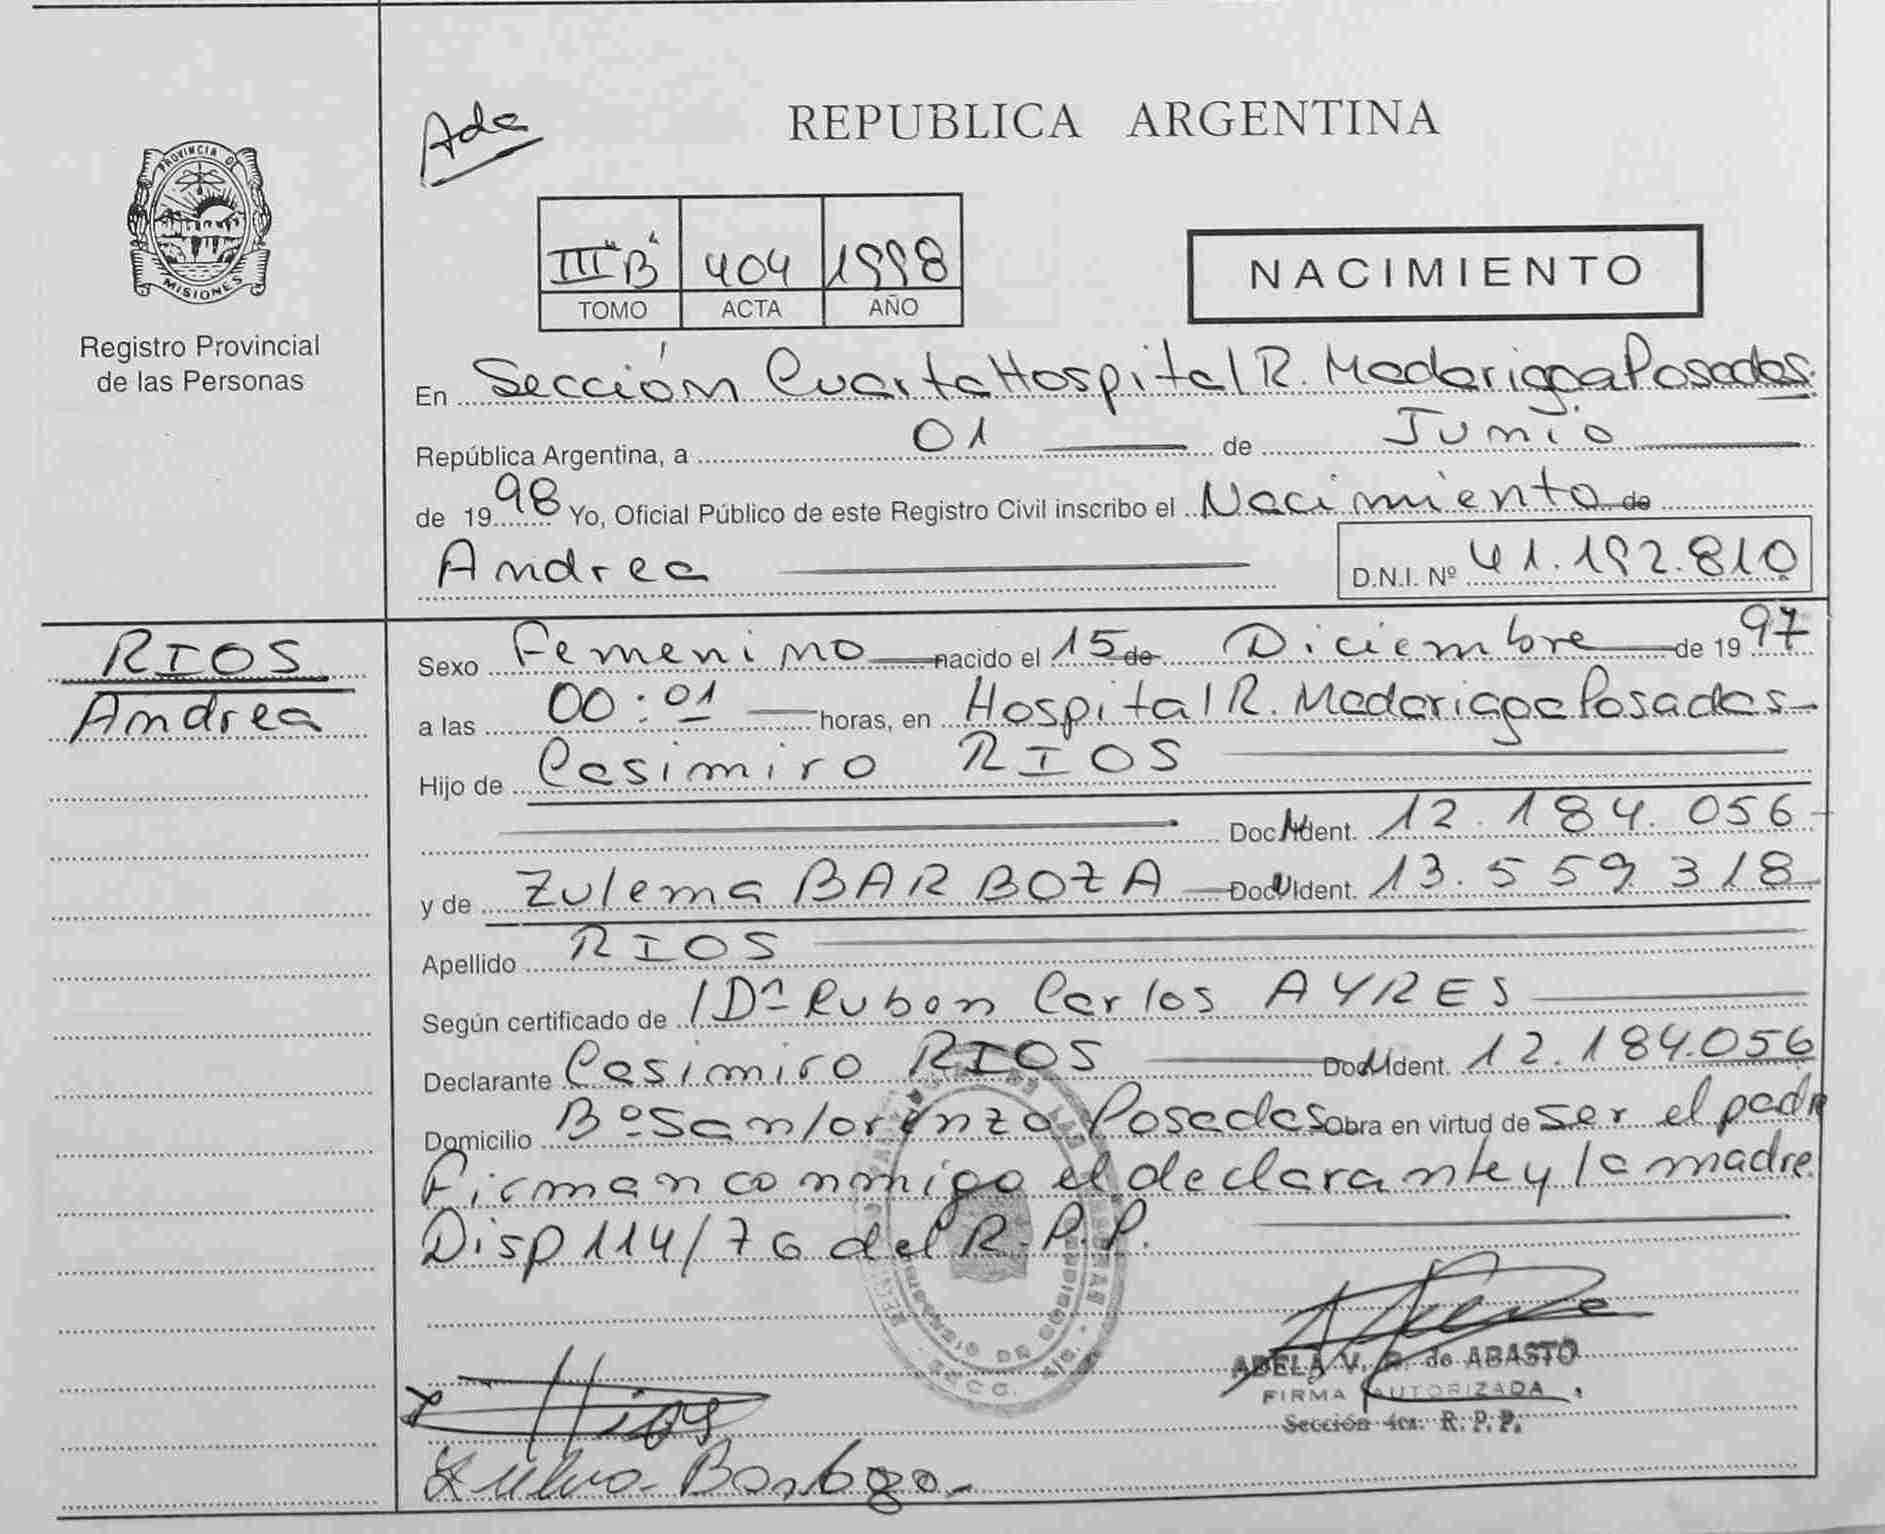 PROVINCIA DE
MISIONES
Registro Provincial
de las Personas
RIOS
Andrea
Ada
REPUBLICA ARGENTINA
III "B" 404 1998
TOMO ACTA AÑO
NACIMIENTO
En Sección Cuarta Hospital R. Madariaga Posadas.
República Argentina, a 01 de Junio
de 1998 Yo, Oficial Público de este Registro Civil inscribo el Nacimiento de
Andrea D.N.I. Nº 41.192.810
Sexo Femenino nacido el 15 de Diciembre de 1997
a las 00:01 horas, en Hospital R. Madariaga Posadas
Hijo de Casimiro RIOS
Doc. Ident. 12.184.056
y de Zulema BARBOZA Doc. Ident. 13.559.318
Apellido RIOS
Según certificado de Dr Ruben Carlos AYRES
Declarante Casimiro RIOS Doc. Ident. 12.184.056
Domicilio Bº San lorenzo Posadas Obra en virtud de ser el padre
Firman conmigo el declarante y la madre
Disp 114/76 del R.P.P.
ADELA V. de ABASTO
FIRMA AUTORIZADA
Sección 4ta. R.P.P.
Rios